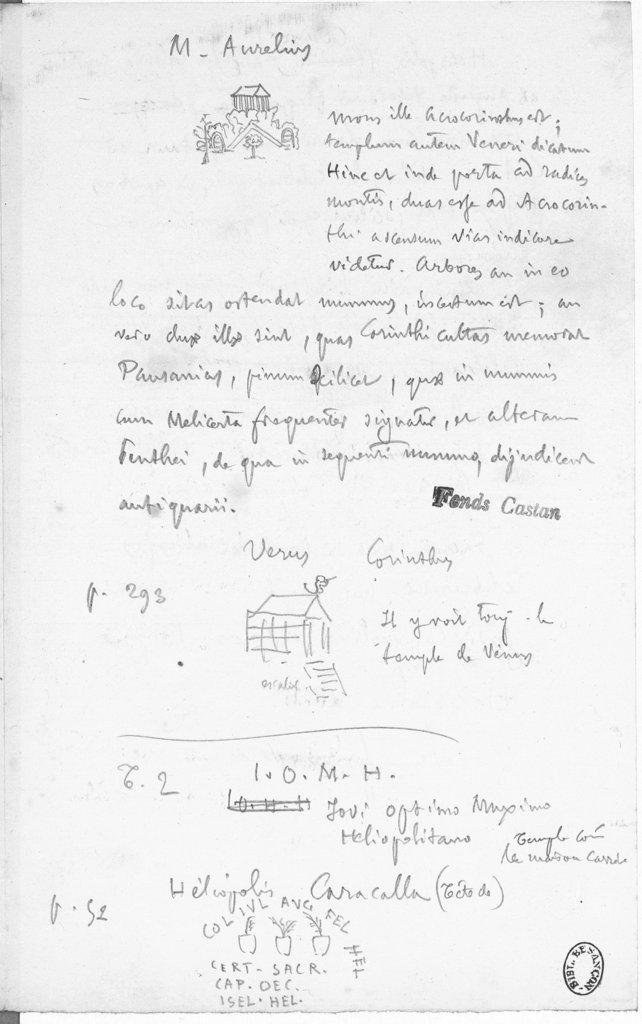 M. Aurelius
mons ille Acrocorinthus est ;
templum autem Veneri dicatum
Hinc et inde porta ad radices
montis, duas esse ad Acrocorin-
thi ascensum vias indicare
videtur. Arbores an in eo
loco sitas ostendat nummus, incertum est ; an
vero duæ illæ sint, quas Corinthi cultas memorat
Pausanias, pinum scilicet, quæ in nummis
cum Melicerta frequenter signatur, et alteram
Penthei, de qua in sequenti nummo, dijudicent
antiquarii.
Fonds Castan
Verus Corinthus
p. 293
Il y voit touj. le
temple de Vénus
escalier
T. 2
I. O. M. H.
I.O.H.
Jovi optimo Maximo
Heliopolitano
Temple com̃
la maison Carrée
p. 52
Héliopolis Caracalla (Tête de)
COL IVL AVG FEL
HEL
CERT. SACR.
CAP. OEC.
ISEL. HEL.
BIBL. BESANÇON